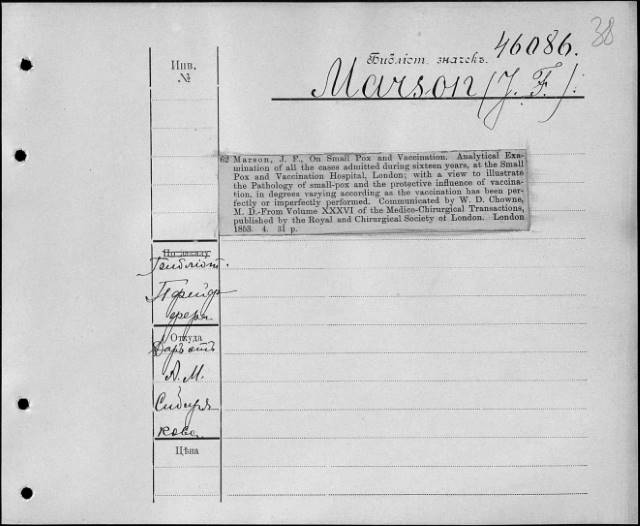 38
46086.
Инв.
№
Библіот. значекъ.
Marson (J. F.).
62 Marson, J. F., On Small Pox and Vaccination. Analytical Exa-
mination of all the cases admitted during sixteen years, at the Small
Pox and Vaccination Hospital, London; with a view to illustrate
the Pathology of small-pox and the protective influence of vaccina-
tion, in degrees varying according as the vaccination has been per-
fectly or imperfectly performed. Communicated by W. D. Chowne,
M. D.-From Volume XXXVI of the Medico-Chirurgical Transactions,
published by the Royal and Chirurgical Society of London. London
1853. 4. 31 p.
Откуда
Даръ отъ
А. М.
Сибиря
кова
Цѣна